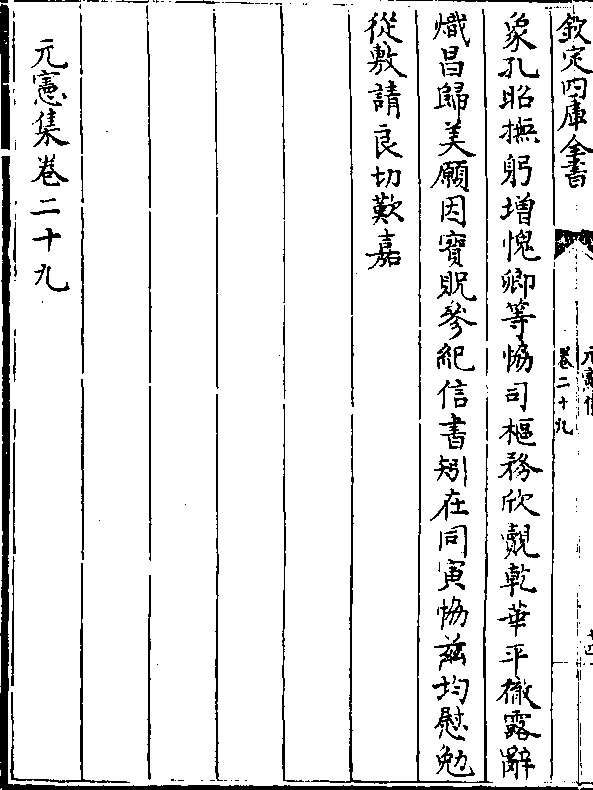 欽定四庫全書
卷二十九
象孔昭撫躬增愧卿等恊司樞務欣覿乾華平徹露辭
熾昌歸美願因寶貺參紀信書矧在同寅恊兹均慰勉
從敷請良切歎嘉
元憲集卷二十九